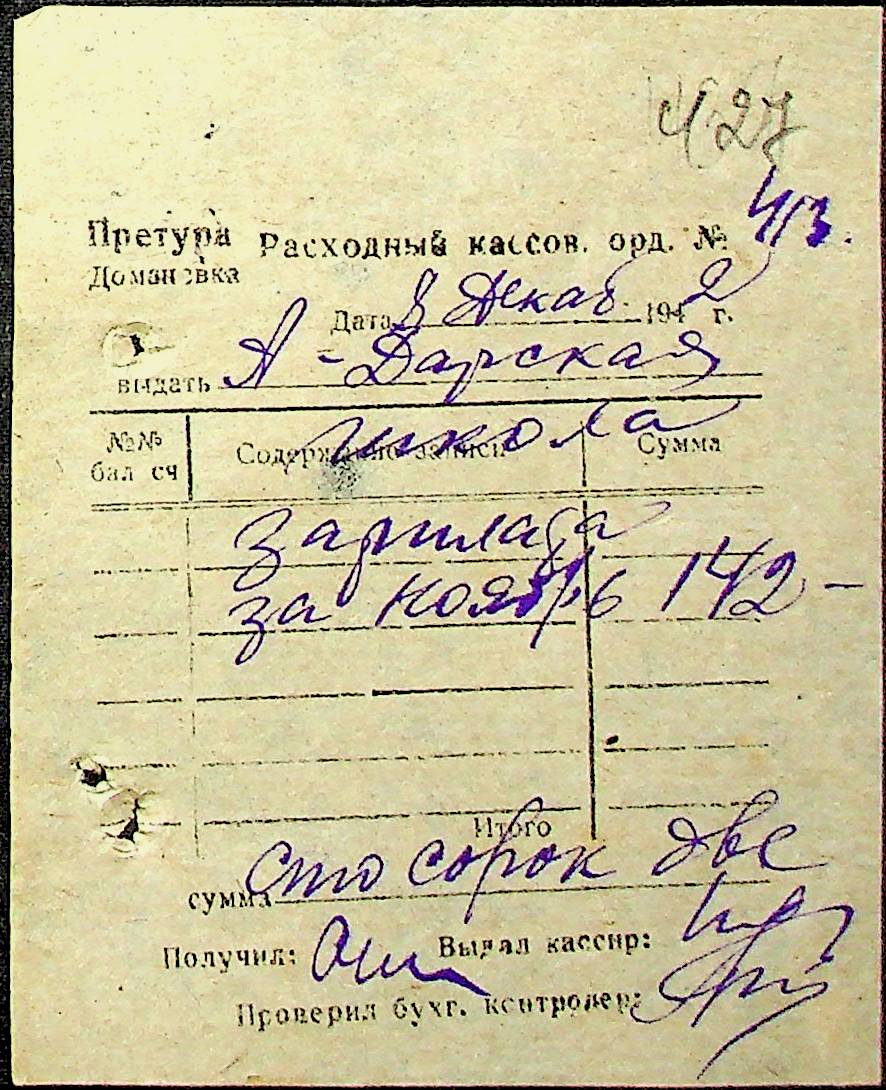 427
Претура Расходный кассов. орд. № 413.
Домановка
Дата 8 Декаб. 1942 г.
выдать А-Дарская
школа
№№ бал сч Содержание записи Сумма
зарплата
за ноябрь 142-
Итого
сумма сто сорок две
Получил: Выдал кассир:
Проверил бухг. контролер: